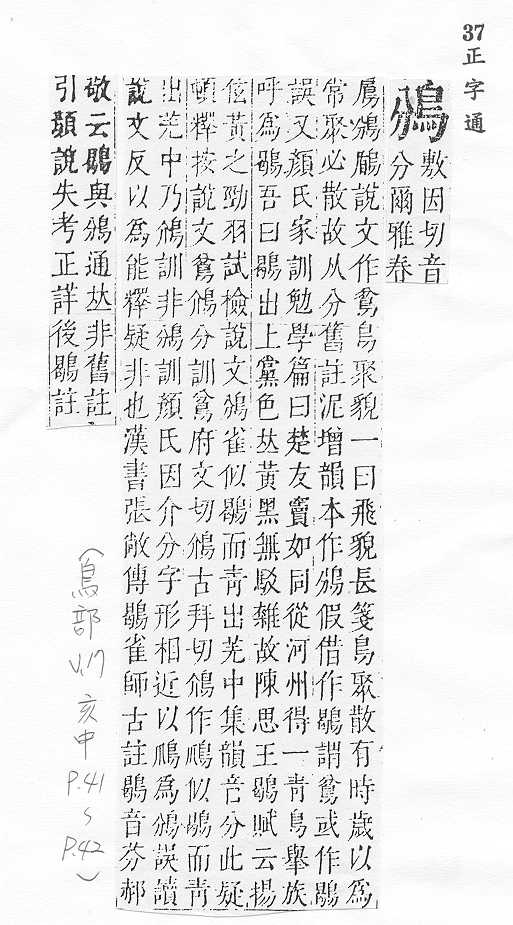 37 正字通
鳻
敷因切音
分爾雅春
鳸鳻鶞說文作鳻鳥聚貌一曰飛貌長箋鳥聚散有時歲以為
常聚必散故从分舊註泥增韻本作鳻假借作鶡謂鳻或作鶡
誤又顏氏家訓勉學篇曰楚友竇如同從河州得一青鳥舉族
呼為鶡吾曰鶡出上黨色𠀤黃黑無駁雜故陳思王鶡賦云揚
伭黃之勁羽試檢說文鳻雀似鶡而青出羌中集韻音分此疑
頓釋按說文鳻䲸分訓鳻府文切䲸古拜切䲸作䲸似鶡而青
出羌中乃䲸訓非鳻訓顏氏因介分字形相近以䲸為鳻誤讀
說文反以為能釋疑非也漢書張敞傳鶡雀師古註鶡音芬郝
敬云鶡與鳻通𠀤非舊註
引顏說失考正詳後鶡註
(鳥部 V.17 亥中 P.41 ~ P.42)